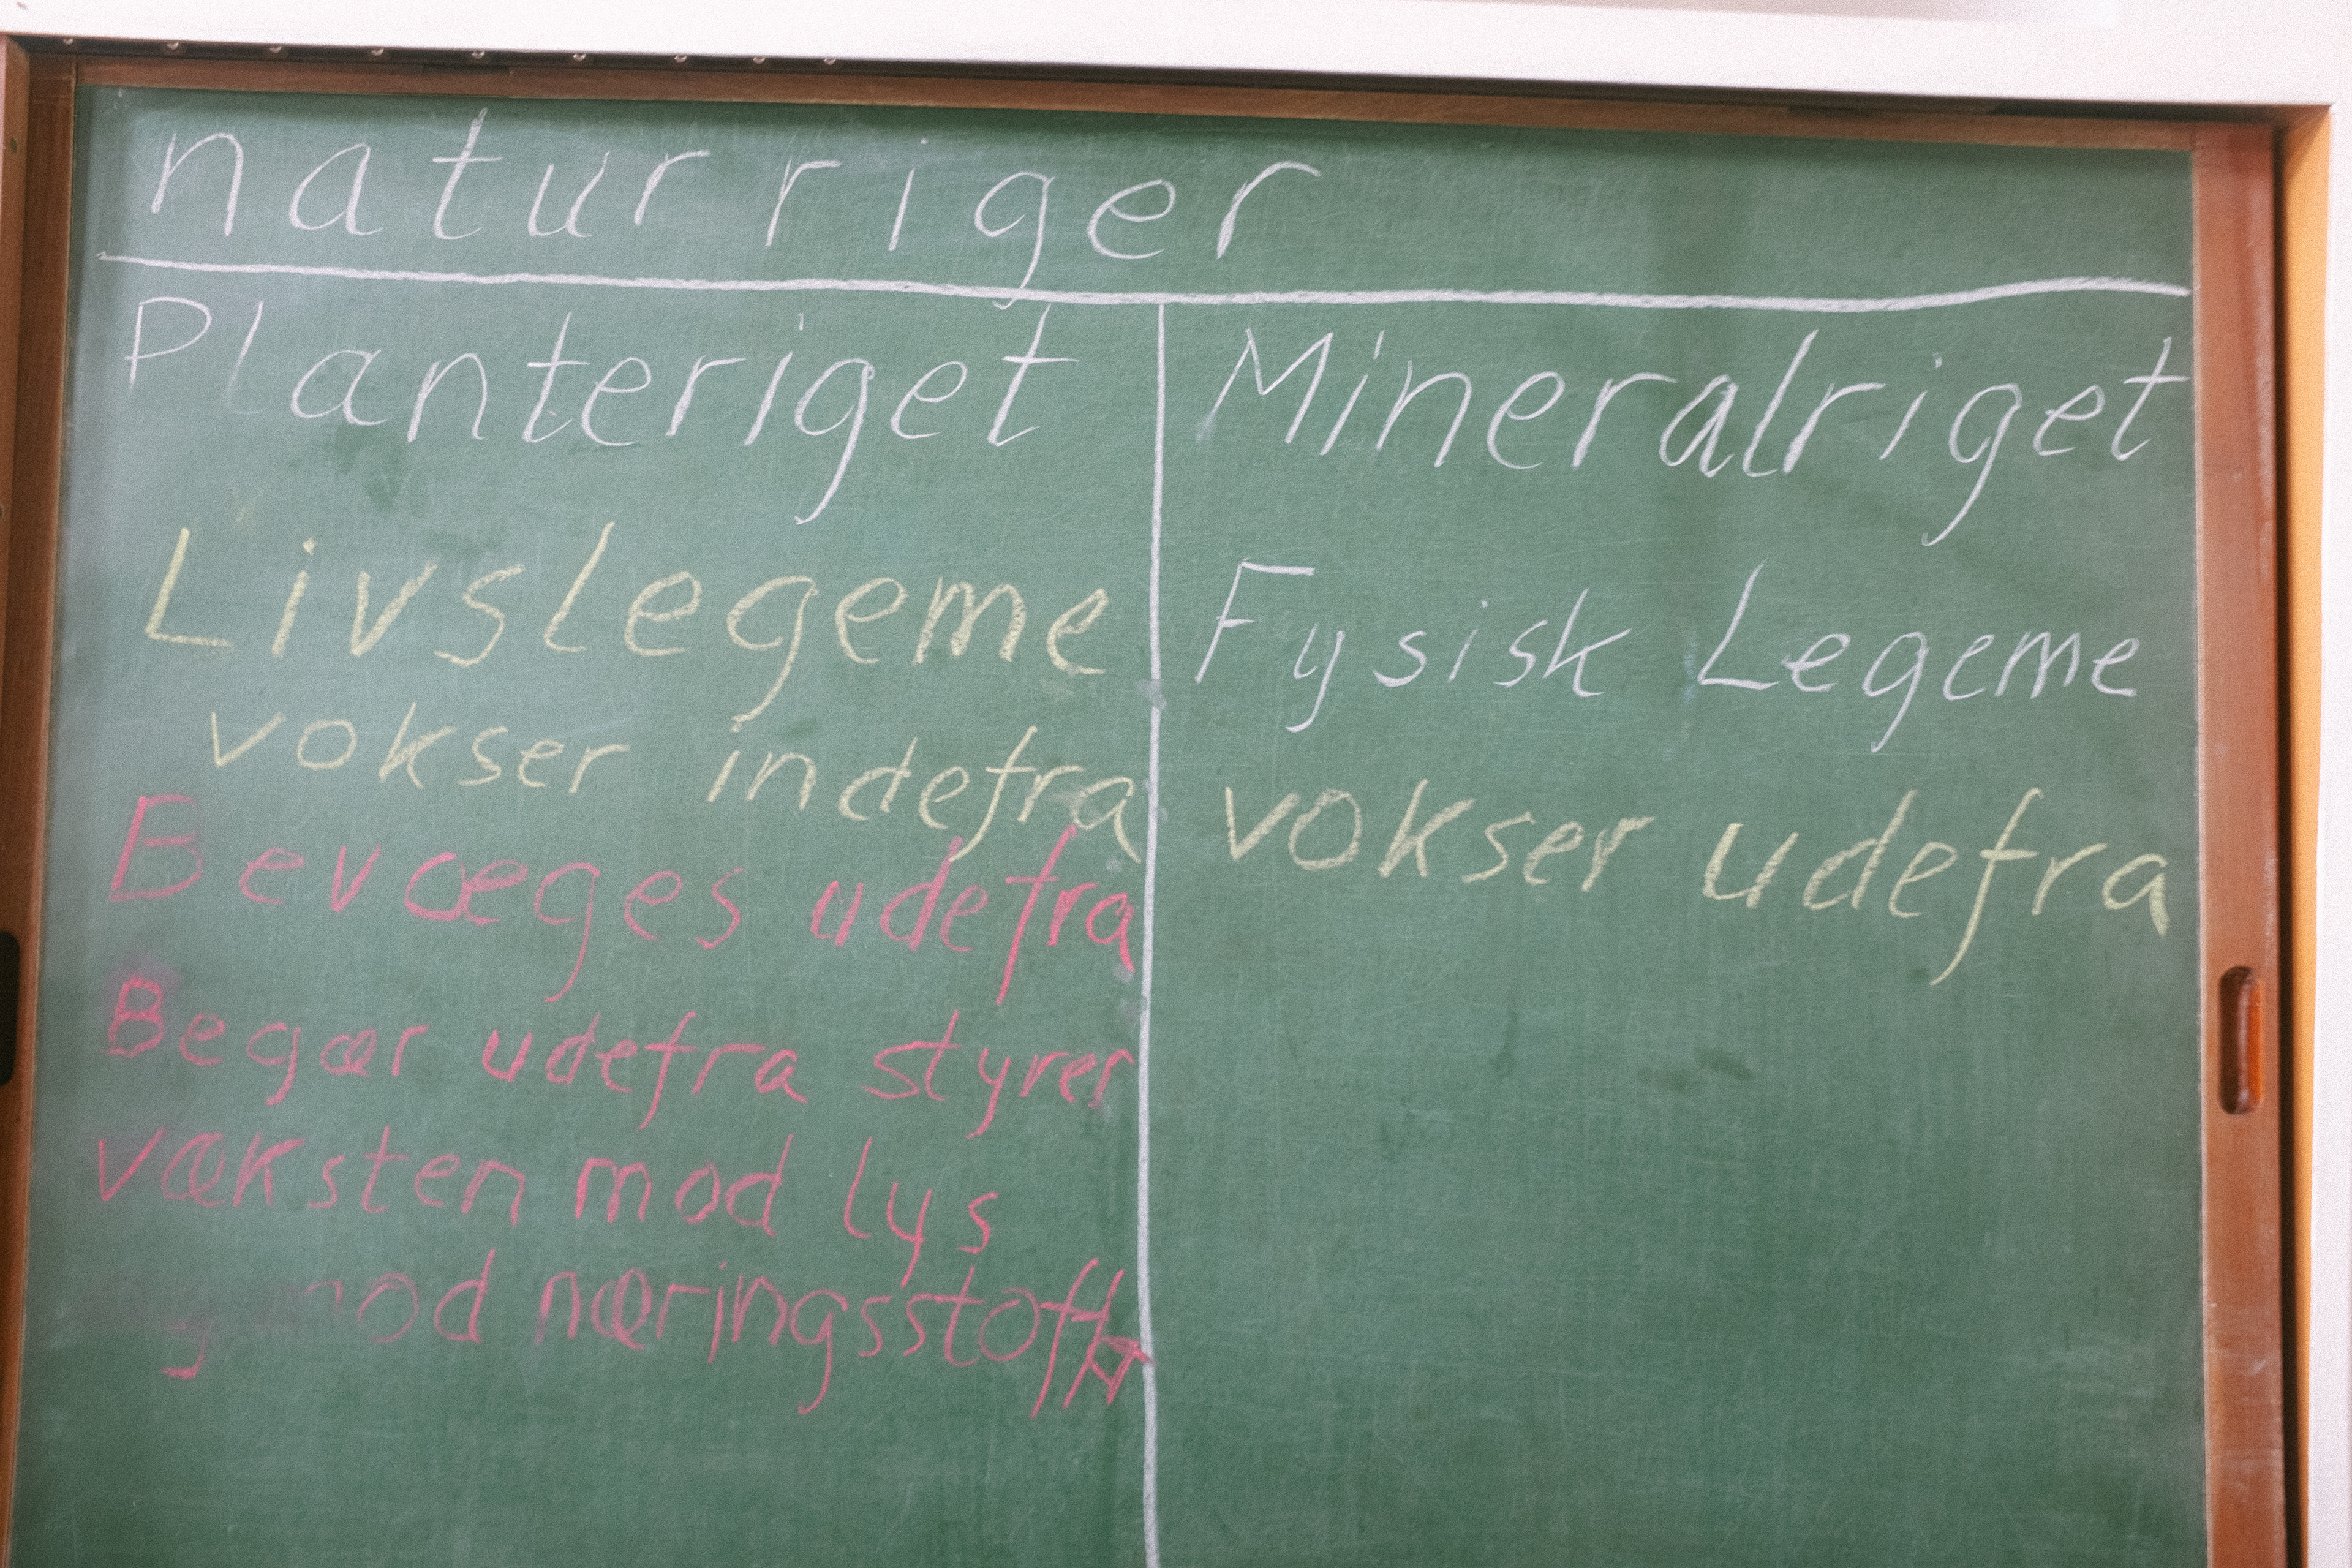 naturriger
Planteriget
Livslegeme
vokser indefra
Bevæges udefra
Begær udefra styrer
væksten mod lys
mod næringsstoffer
Mineralriget
Fysisk Legeme
vokser udefra